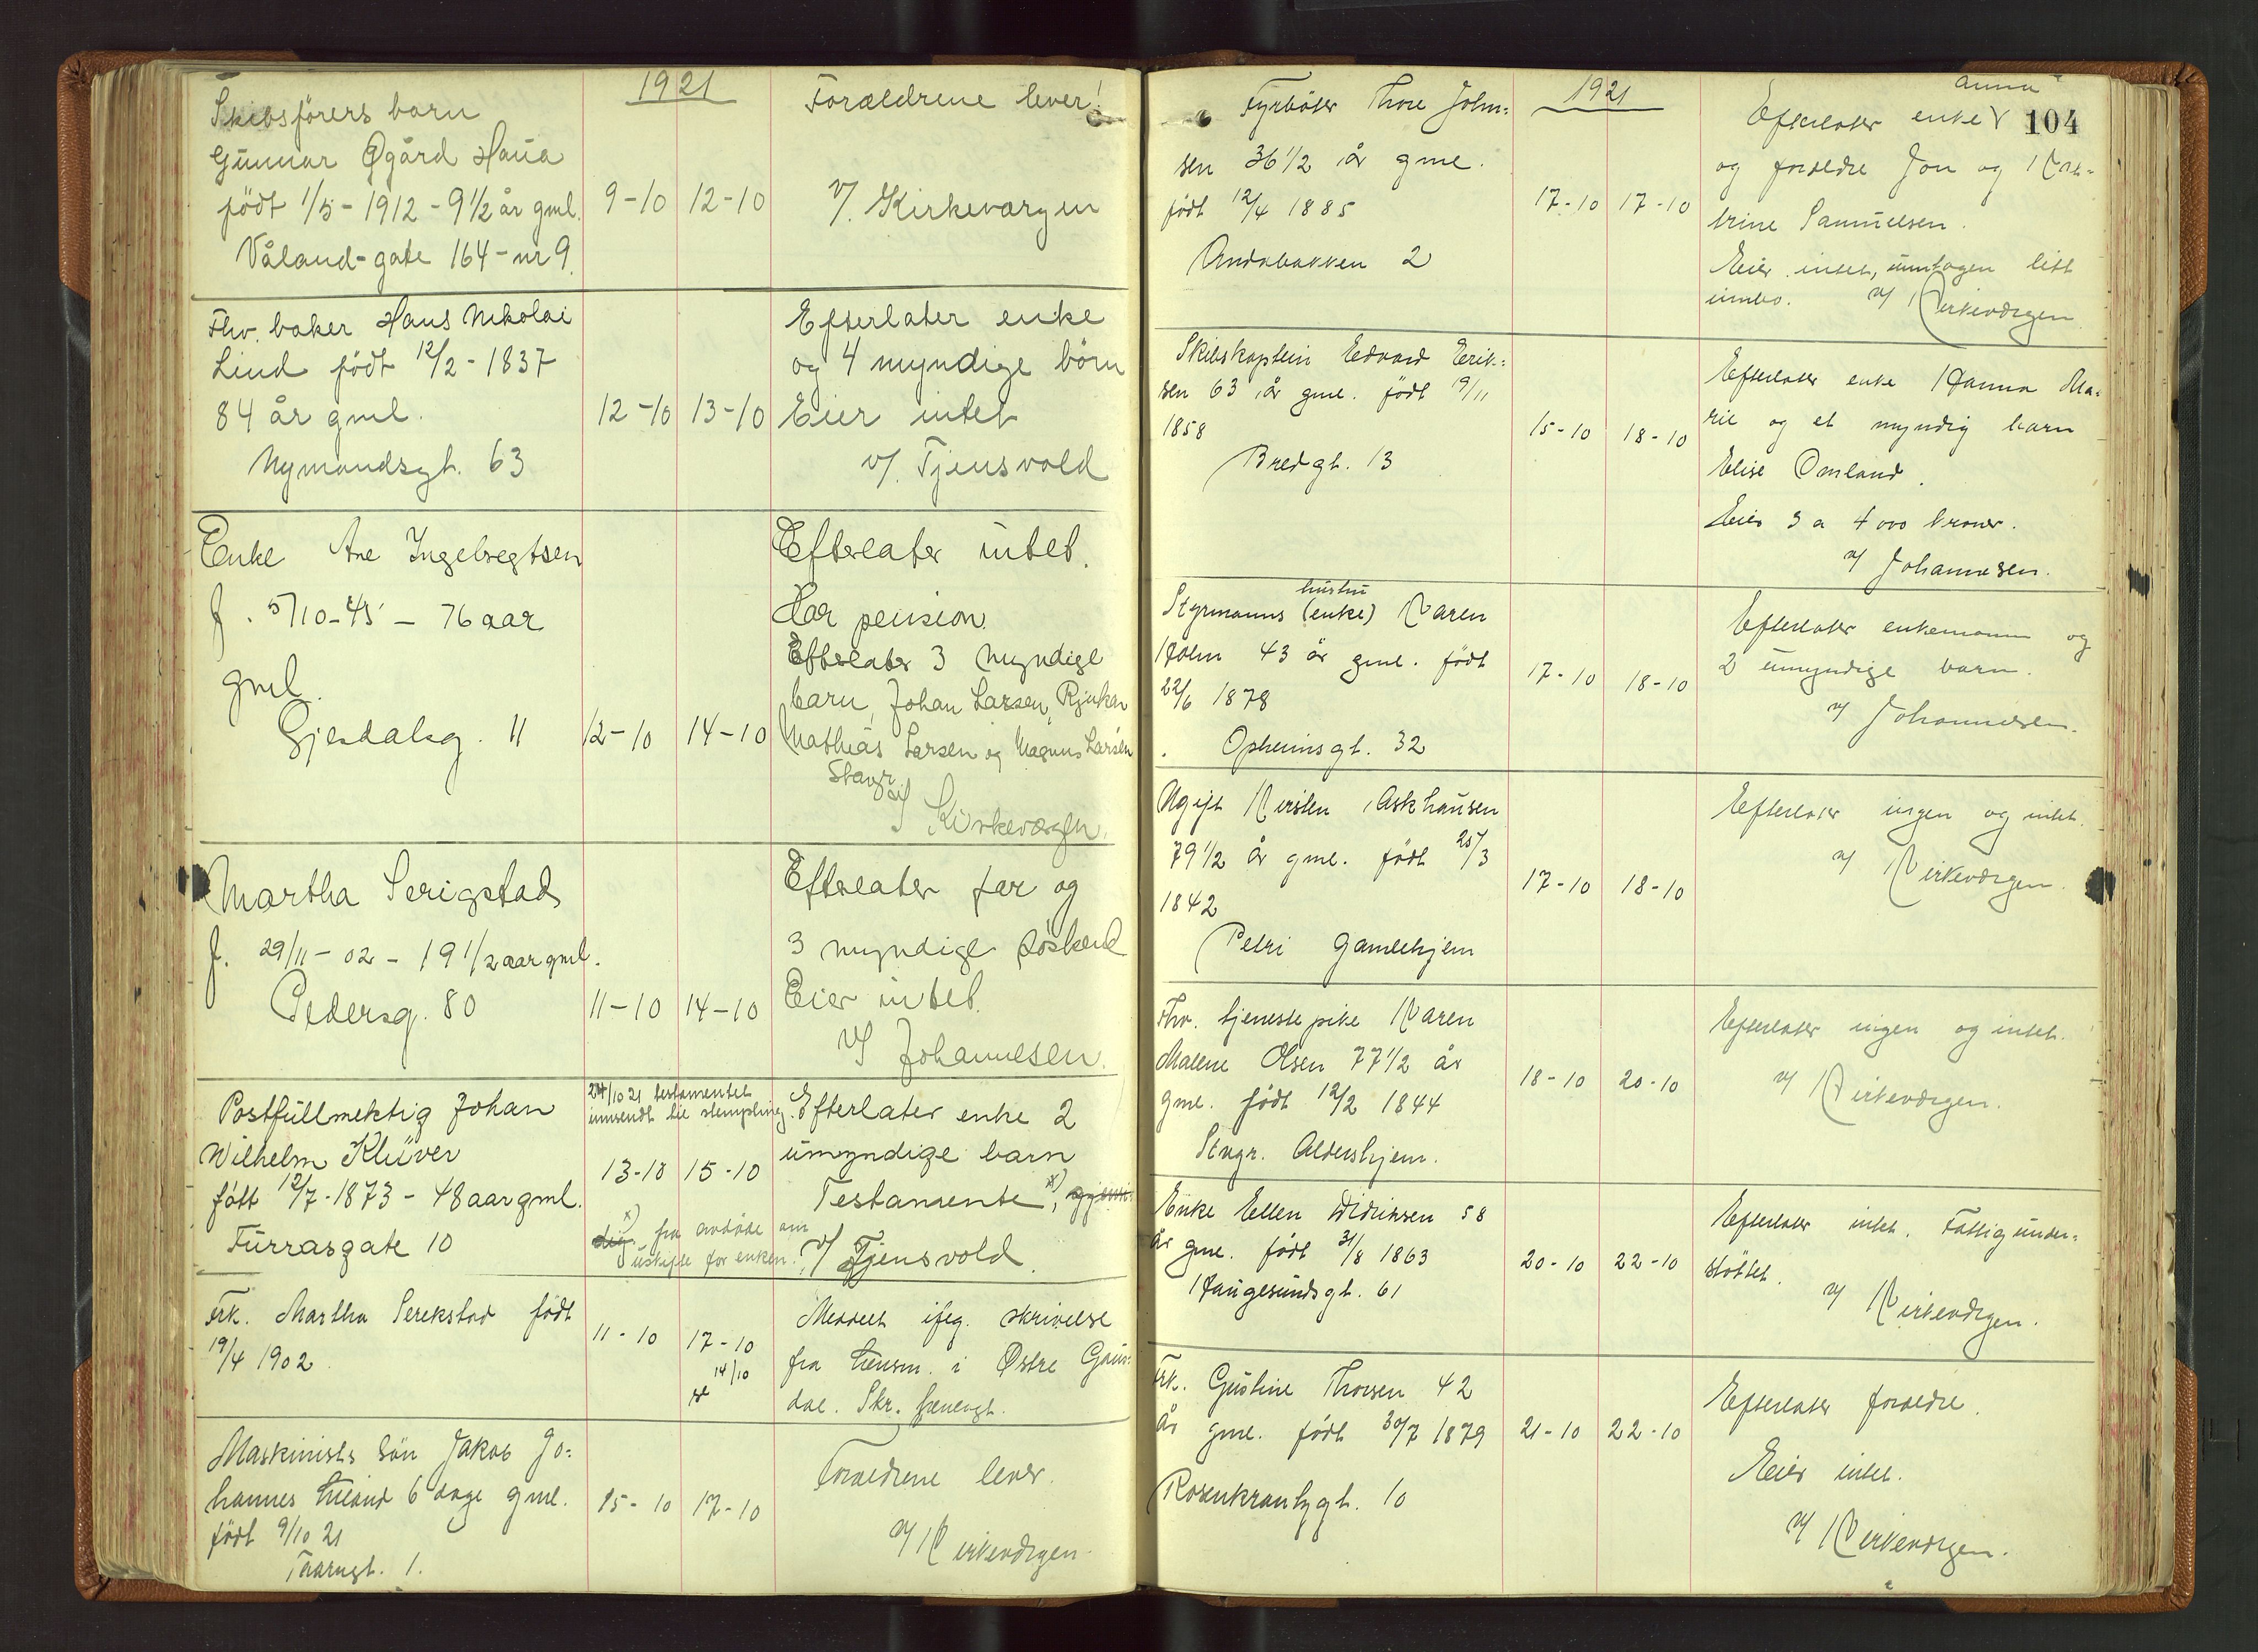 1921
Skibsførers barn
Gunnar Øgård Haua
født 1/5 - 1912 - 9 1/2 år gml.
Våland-gate 164 - nr 9.
9-10 12-10
Forældrene lever!
v/. Kirkevargen
Fhv. baker Hans Nikolai
Lind født 12/2 - 1837
84 år gml.
Nymandsgt. 63
12-10 13-10
Efterlater enke
og 4 myndige börn
Eier intet
v/. Tjensvold
Enke Ane Ingebregtsen
f. 5/10-45 - 76 aar
gml.
Gjesdalsg. 11
12-10 14-10
Efterlater intet.
Har pension.
Efterlater 3 myndige
barn, Johan Larsen, Rjukan
Mathias Larsen og Magnus Larsen
Stavgr
v/ Kirkevergen.
Martha Serigstad
f. 29/11 - 02 - 19 1/2 aar gml.
Pedersg. 80
11-10 14-10
Efterlater far og
3 myndige søskend
Eier intet.
v/ Johannesen.
Postfullmektig Johan
Wilhelm Klüver
født 12/7 - 1873 - 48 aar gml.
Furrasgate 10
24/10 21 testamentet
innsendt til stempling.
13-10 15-10
x) fra avdøde om
uskifte for enken.
Efterlater enke 2
umyndige barn
Testamente x),
v/ Tjensvold.
Frk. Martha Serekstad født
19/4 1902.
11-10 17-10
14/10
Meddelt ifølg. skrivelse
fra lensm. i Østre Gaus-
dal. Skr. henlagt.
Maskinists sön Jakob Jo=
hannes Lieland 6 dage gml.
født 9/10 21
Taarngt. 1.
15-10 17-10
Forældrene lever.
v/ Kirkeværgen.
104
1921
Fyrbøter Thore John=
sen 36 1/2 år gml.
født 12/4 1885
Andabakken 2
17-10 17-10
Anna
Efterlater enke V
og forældre Jon og Kat-
trine Samuelsen.
Eier intet, unntagen litt
innbo. v/ Kirkeværgen
Skibskaptein Edvard Erik=
sen 63 år gml. født 19/11
1858
Bredgt. 13
15-10 18-10
Efterlater enke Hanna Ma-
rie og et myndig barn
Elise Omland.
Eier 3 a 4000 kroner.
v/ Johannesen.
hustru
Styrmanns (enke) Karen
Holm 43 år gml. født
22/6 1878
Opheimsgt. 32
17-10 18-10
Efterlater enkemann og
2 umyndige barn.
v/ Johannesen.
Ugift Kirsten Askhausen
79 1/2 år gml. født 25/3
1842
Petri Gamlehjem
17-10 18-10
Efterlater ingen og intet.
v/ Kirkeværgen.
Fhv. tjenestepike Karen
Malene Olsen 77 1/2 år
gml. født 12/2 1844
Stvgr. Aldershjem.
18-10 20-10
Efterlater ingen og intet.
v/ Kirkeværgen.
Enke Ellen Didriksen 58
år gml. født 31/8 1863
Haugesundsgt. 61
20-10 22-10
Efterlater intet. Fattigunder=
støttet.
v/ Kirkeværgen.
Frk. Gustine Thorsen 42
år gml. født 30/7 1879
Rosenkrantzgt. 10
21-10 22-10
Efterlater forældre.
Eier intet.
v/ Kirkeværgen.